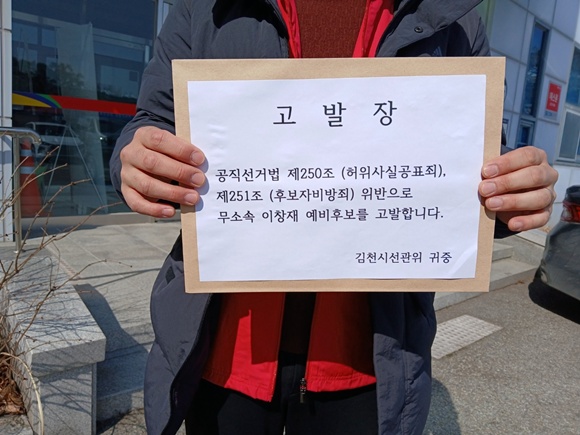 고 발 장
공직선거법 제250조 (허위사실공표죄),
제251조 (후보자비방죄) 위반으로
무소속 이창재 예비후보를 고발합니다.
김천시선관위 귀중